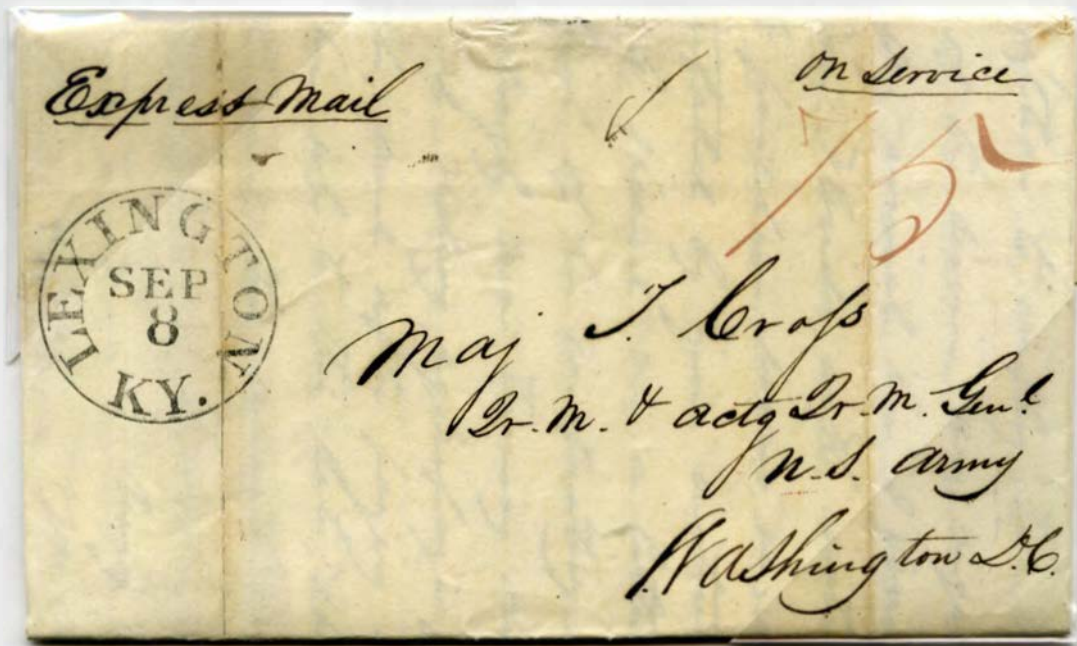 Express Mail
on Service
75
LEXINGTON
SEP
8
KY.
Maj T. Cross
Qr. M. & actg Qr. M. Genl
U.S. Army
Washington D.C.